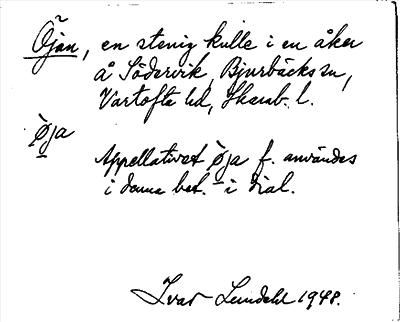 Öjan, en stenig kulle i en åker
å Södervik, Bjurbäcks sn,
Vartofta hd, Skarab. l.
øja
Appellativet øja f. användes
i denna bet. i dial.
Ivar Lundahl 1948.